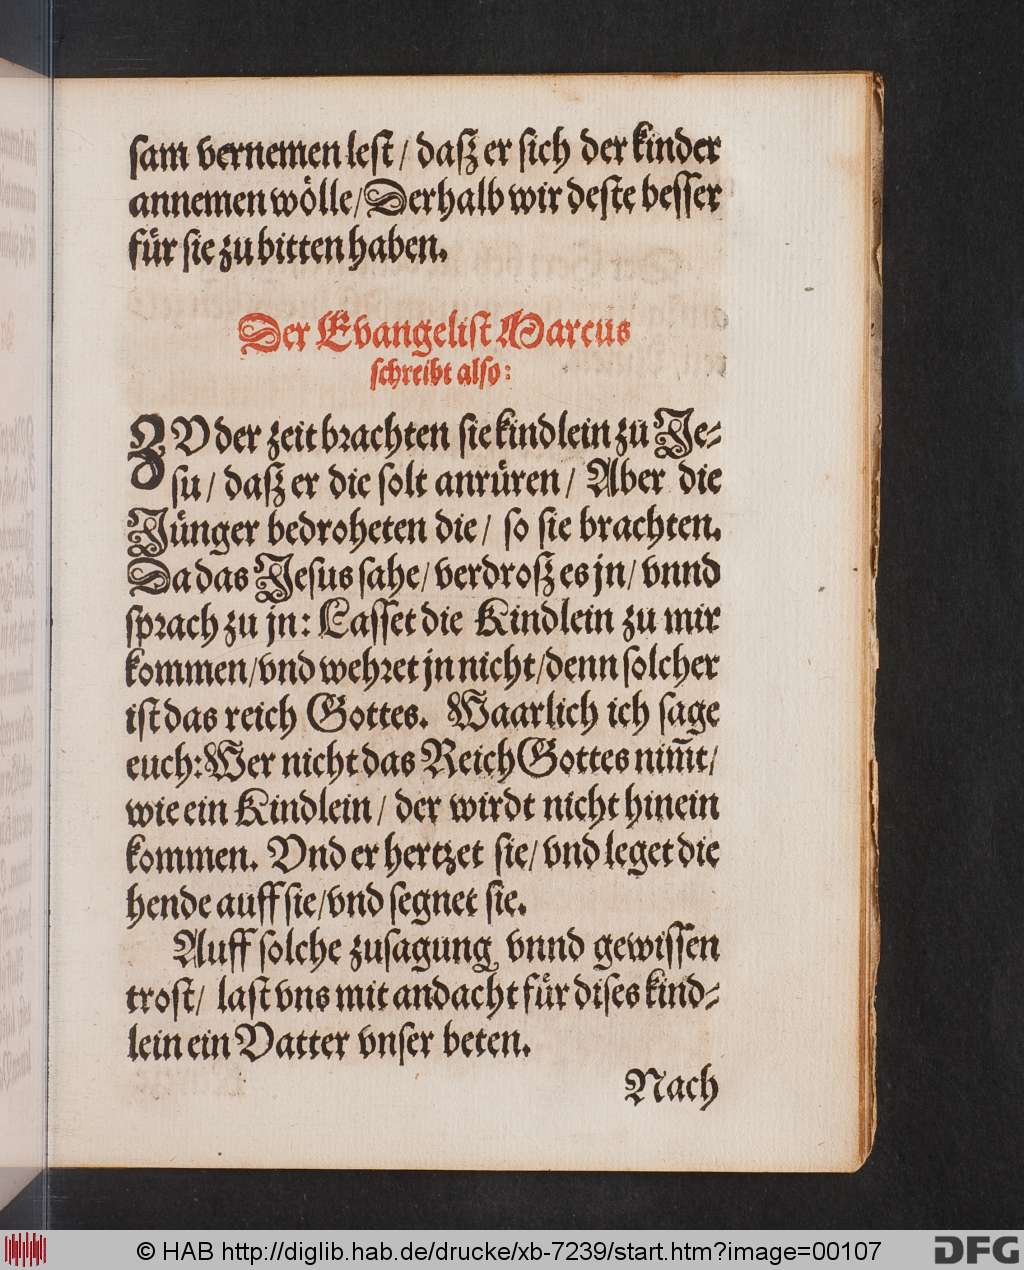 sam vernemen lest / dasz er sich der kinder
annemen wölle / Derhalb wir deste besser
für sie zu bitten haben.
Der Evangelist Marcus
schreibt also:
ZV der zeit brachten sie kindlein zu Je-
su / dasz er die solt anrüren / Aber die
Jünger bedroheten die / so sie brachten.
Da das Jesus sahe / verdrosz es jn / vnnd
sprach zu jn: Lasset die Kindlein zu mir
kommen / vnd wehret jn nicht / denn solcher
ist das reich Gottes. Waarlich ich sage
euch: Wer nicht das Reich Gottes nim̃t /
wie ein Kindlein / der wirdt nicht hinein
kommen. Vnd er hertzet sie / vnd leget die
hende auff sie / vnd segnet sie.
Auff solche zusagung vnnd gewissen
trost / last vns mit andacht für dises kind-
lein ein Vatter vnser beten.
Nach
© HAB http://diglib.hab.de/drucke/xb-7239/start.htm?image=00107
DFG